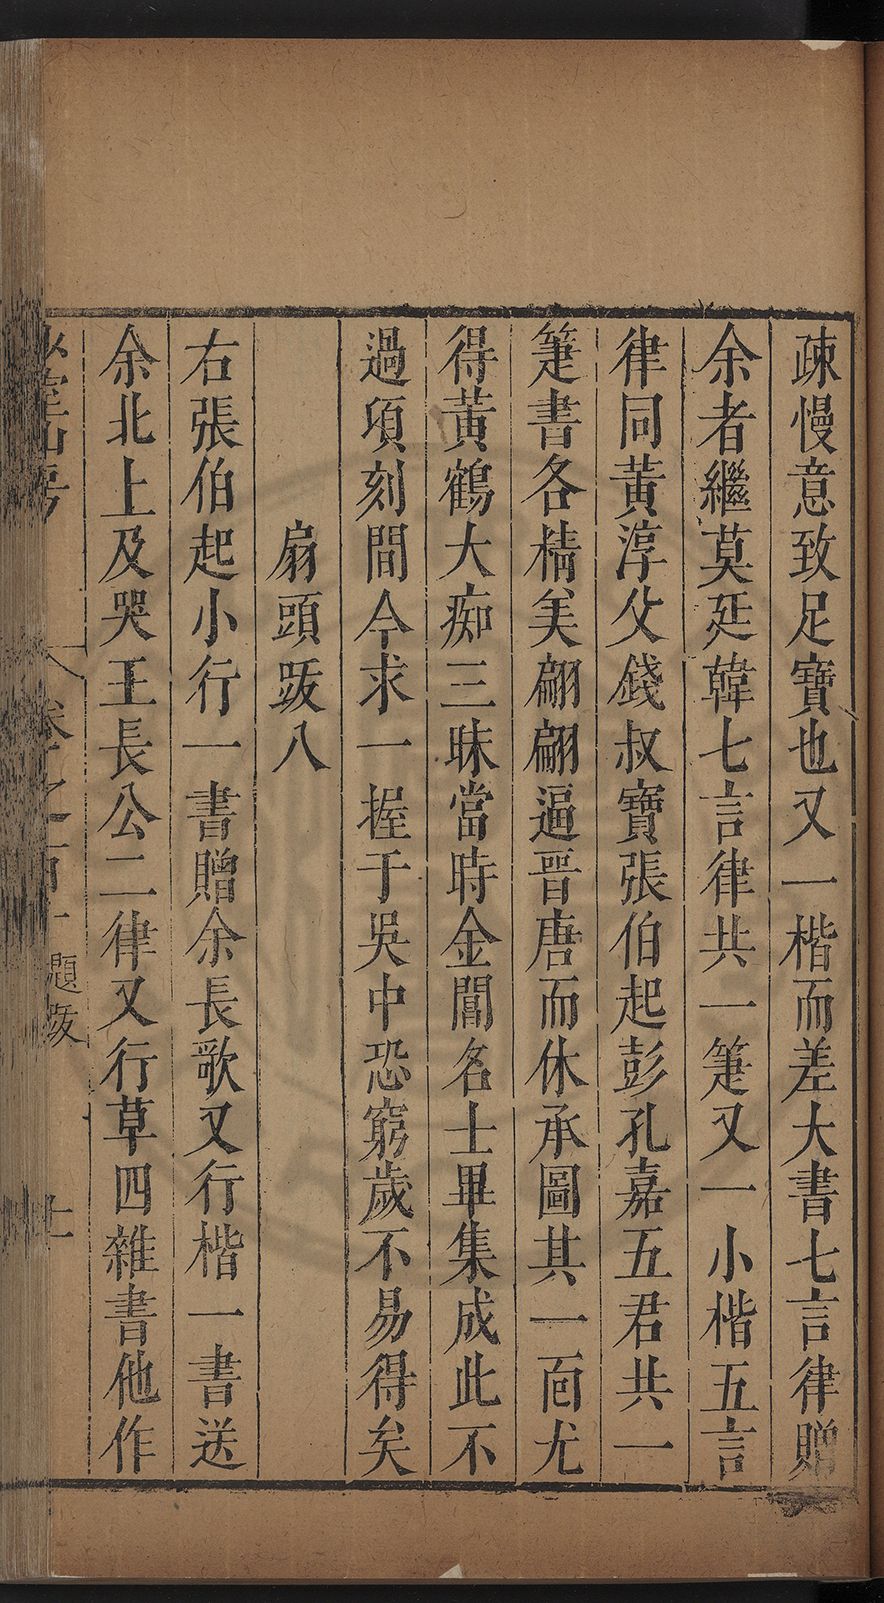 疎慢意致足寶也又一楷而差大書七言律贈
余者繼莫廷韓七言律共一箑又一小楷五言
律同黃淳父錢叔寶張伯起彭孔嘉五君共一
箑書各精美翩翩逼晋唐而休承圖其一面尤
得黃鶴大痴三昧當時金閶名士畢集成此不
過項刻間今求一握于吳中恐窮歲不易得矣
扇頭跋八
右張伯起小行一書贈余長歌又行楷一書送
余北上及哭王長公二律又行草四雜書他作
山房
卷之一百十 題跋